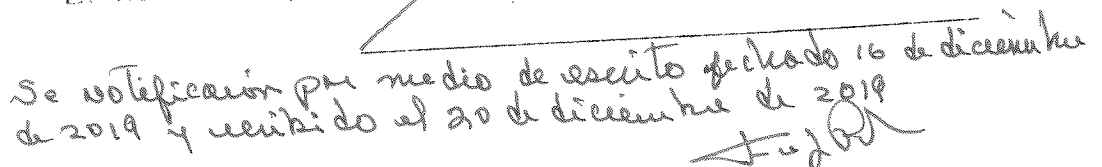 Se notificaron por medio de escrito fechado 16 de diciembre
de 2019 y recibido el 20 de diciembre de 2019